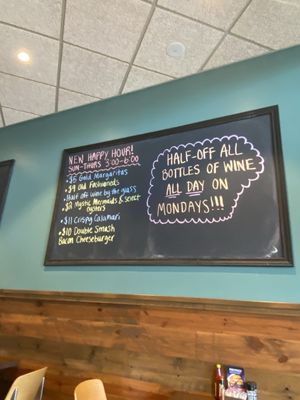 NEW HAPPY HOUR!
SUN-THURS 3:00-6:00
• $5 Gold Margaritas
• $9 Old Fashioneds
• Half off wine by the glass
• $2 Mystic Mermaids & select
oysters
• $11 Crispy Calamari
• $10 Double Smash
Bacon Cheeseburger
HALF-OFF ALL
BOTTLES OF WINE
ALL DAY ON
MONDAYS!!!